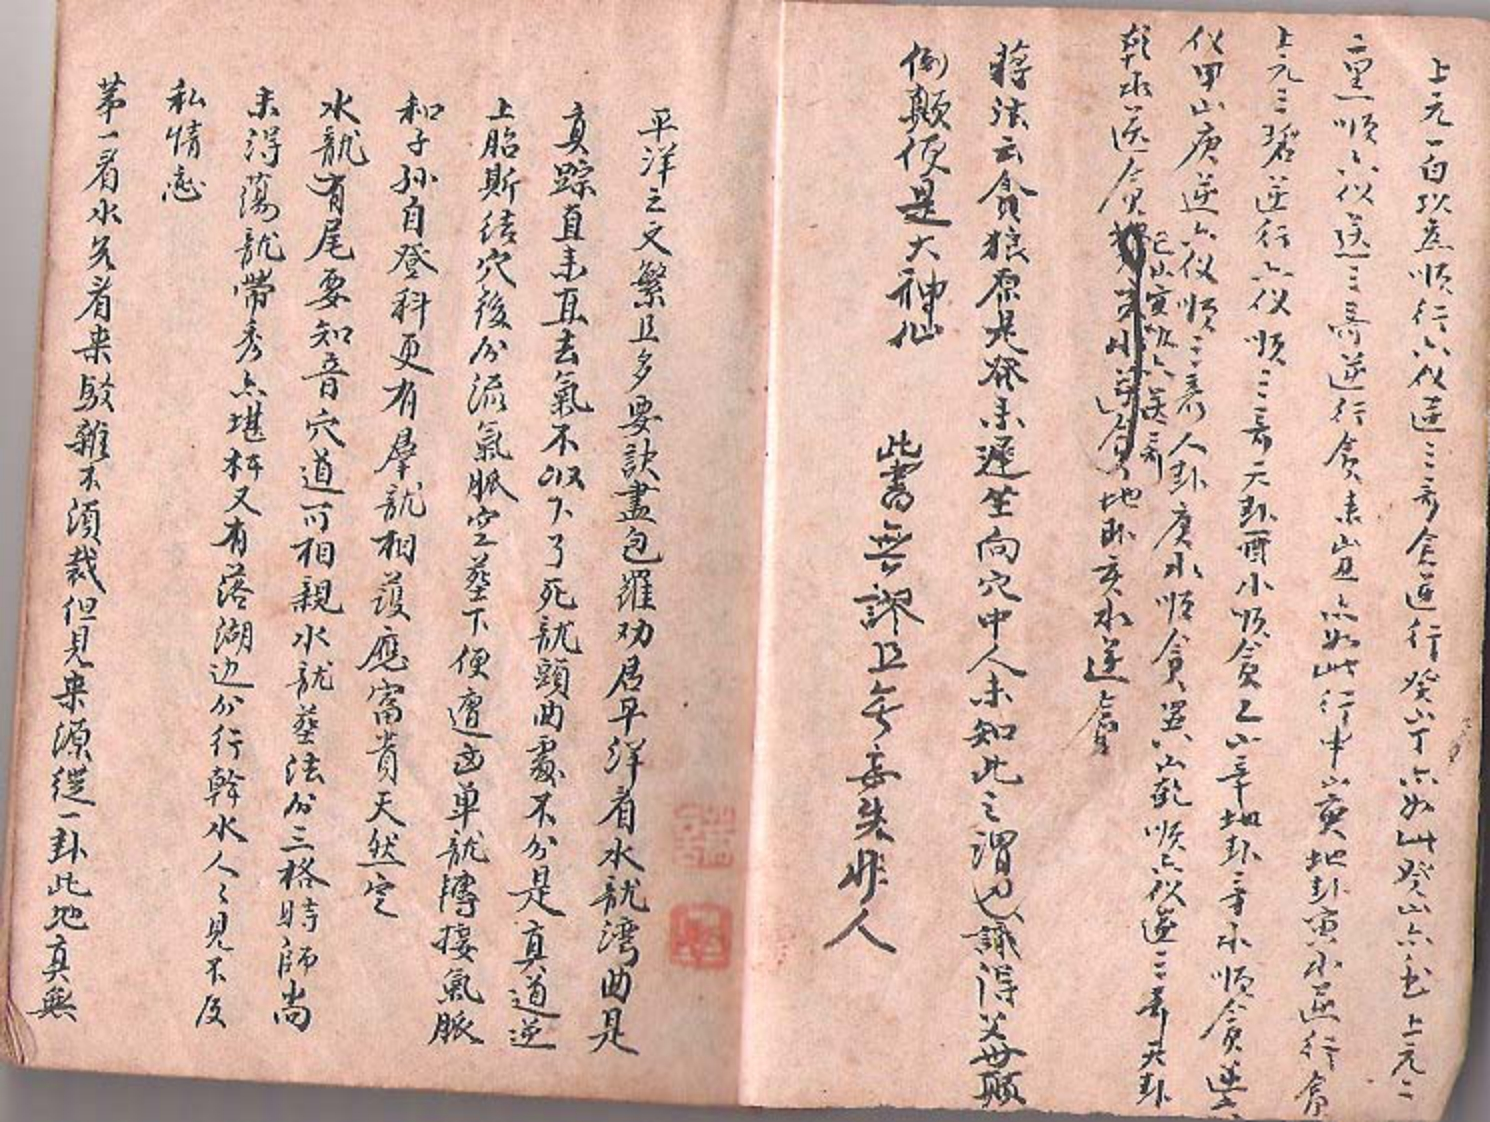 上元一白坎索順行六仪逆三奇貪逆行癸山丁亦如此癸山亦

上元二
二黑順六仪送三奇逆行貪未山丑亦如此行中山寅地卦寅水逆行貪
上元三碧逆行六仪順三奇天卦酉水順貪乙山辛地卦辛水順貪逆六
仪甲山庚逆六仪順三奇人卦庚水順貪巽山乾順六仪逆三奇天卦
乾水送貪巳山地卦亥水逆貪
蔣法云貪狼原是發未遲坐向穴中人未知此之謂也識得父母顛
倒顛便是大神仙 此書無謬且無妄失非人
平洋之文繁且多要訣盡包羅劝君平洋看水龍灣曲是
真踪直來直去氣不收下了死龍頭曲處不分是真道逆
上胎斯结穴後分流氣脈空葬下便遭凶单龍轉接氣脈
和子孙自登科更有羣龍相護應富貴天然定
水龍有尾要知音穴道可相親水龍葬法分三格時師尚
未得蕩龍帶秀亦堪扦又有落湖边分行幹水人々見不及
私情恋
苐一看水先看来駁雜不須裁但見来源從一卦此地真無